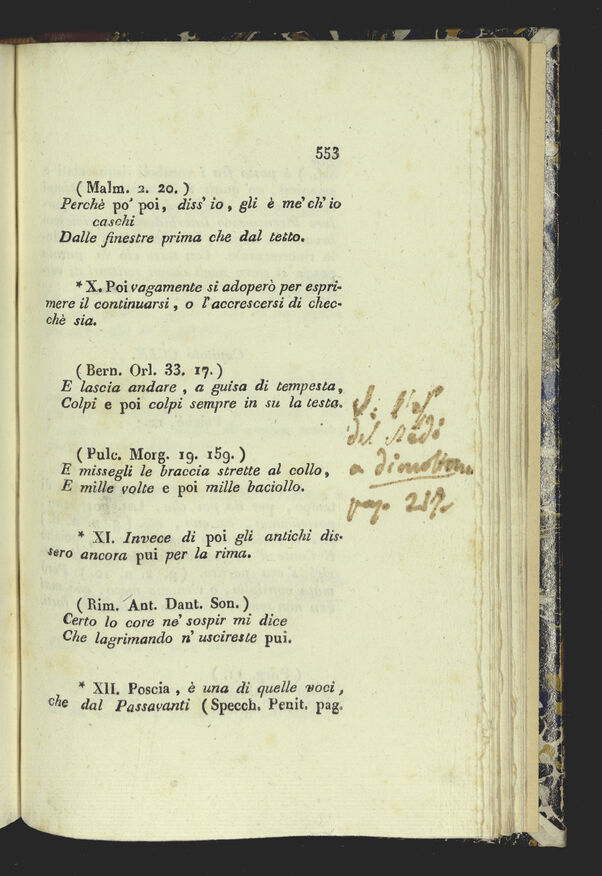 553
( Malm. 2. 20. )
Perchè po' poi, diss' io, gli è me' ch' io
caschi
Dalle finestre prima che dal tetto.
* X. Poi vagamente si adoperò per espri-
mere il continuarsi, o l'accrescersi di chec-
chè sia.
( Bern. Orl. 33. 17. )
E lascia andare, a guisa di tempesta,
Colpi e poi colpi sempre in su la testa.
( Pulc. Morg. 19. 159. )
E missegli le braccia strette al collo,
E mille volte e poi mille baciollo.
* XI. Invece di poi gli antichi dis-
sero ancora pui per la rima.
( Rim. Ant. Dant. Son. )
Certo lo core ne' sospir mi dice
Che lagrimando n' uscireste pui.
* XII. Poscia, è una di quelle voci,
che dal Passavanti ( Specch. Penit. pag.
del Redi
a
pag. 217.